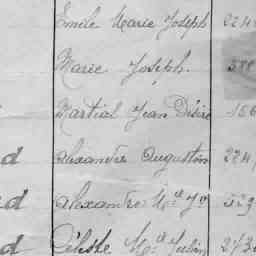 Émile Marie Joseph 224
Marie Joseph. 388
Martial Jean Désiré 156
d Alexandre Augustin 224
d Alexandre M.el Jh
d Céleste M.el Julien 273